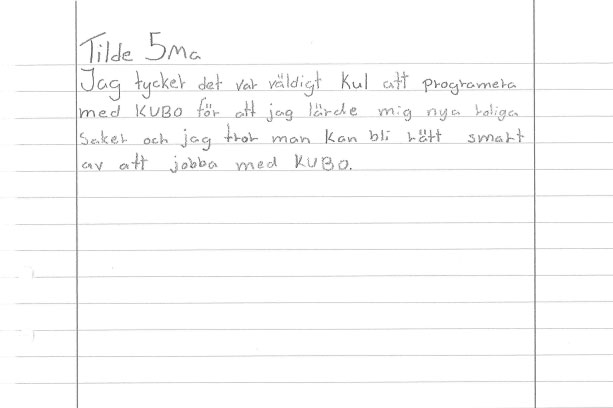 Tilde 5ma
Jag tycker det var väldigt kul att programera
med KUBO för att jag lärde mig nya roliga
saker och jag tror man kan bli rätt smart
av att jobba med KUBO.